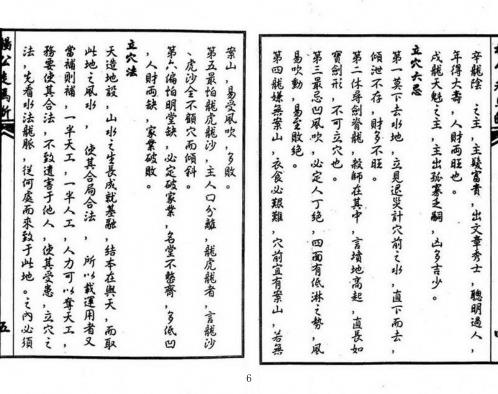 辛龍陰 之主,主出文章秀士,聰明過人,
年得大壽,人財两旺也。
戌龍天魁之主,主出孤寡乏嗣,凶多吉少。
立穴六忌
第一莫下去水地,立見退災計穴前之水,直下而去,
傾泄不存,財多不旺。
第二休尋劍脊龍,殺師在其中,言墳地高起,直長如
寶劍形,不可立穴也。
第三最忌凹風吹,必定人丁绝,四面有低淋之勢,風
易吹動,易至敗绝。
第四龍嫌無案山,衣食必艱難,穴前宜有案山,若無
案山,易受風吹,多敗。
第五最怕龍虎沙,主人口分離,龍虎龍者,言龍沙
、虎沙全不鎖穴而傾斜。
第六偏怕明堂缺,必定破家業,名堂不整齊,多低凹
,人財两缺,家業破敗。
立穴法
天造地設,山水之生長成就基融,結本在與天,而取
此地之風水 使其合局合法, 所以裁運用者又
當補則補,一半天工,一半人工,人力可以奪天工,
務要使其合法,不致遺害于他人,使其受患,立穴之
法,先看水法龍脈,從何處而來致于此地。之內必須
楊公 馬
五
6